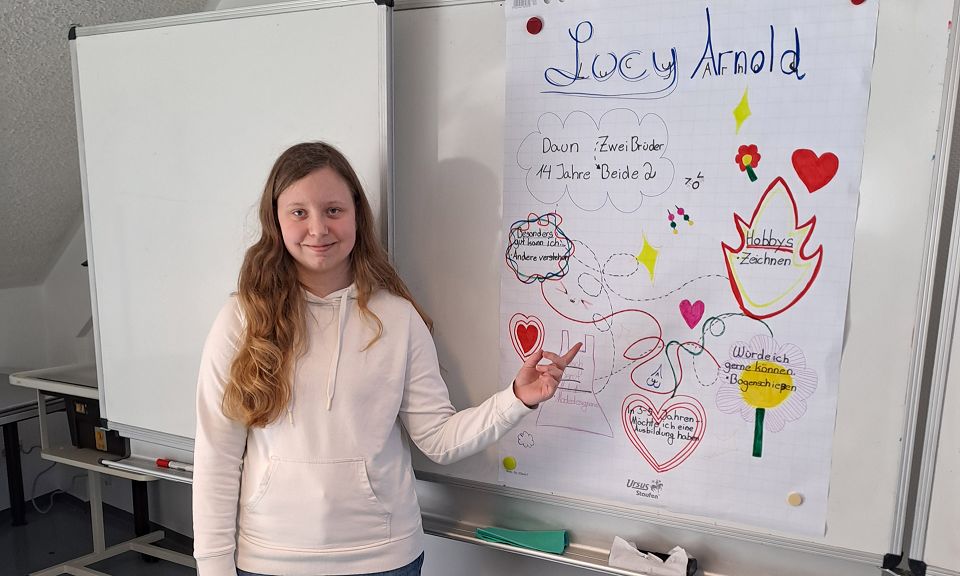 Lucy Arnold
Daun
14 Jahre
Zwei Brüder
Beide 2
Besonders
gut kann ich...
Andere verstehen
Hobbys
• Zeichnen
Würde ich
gerne können.
• Bogenschießen
In 3-5 Jahren
Möchte ich eine
Ausbildung haben
Ursus
Staufen